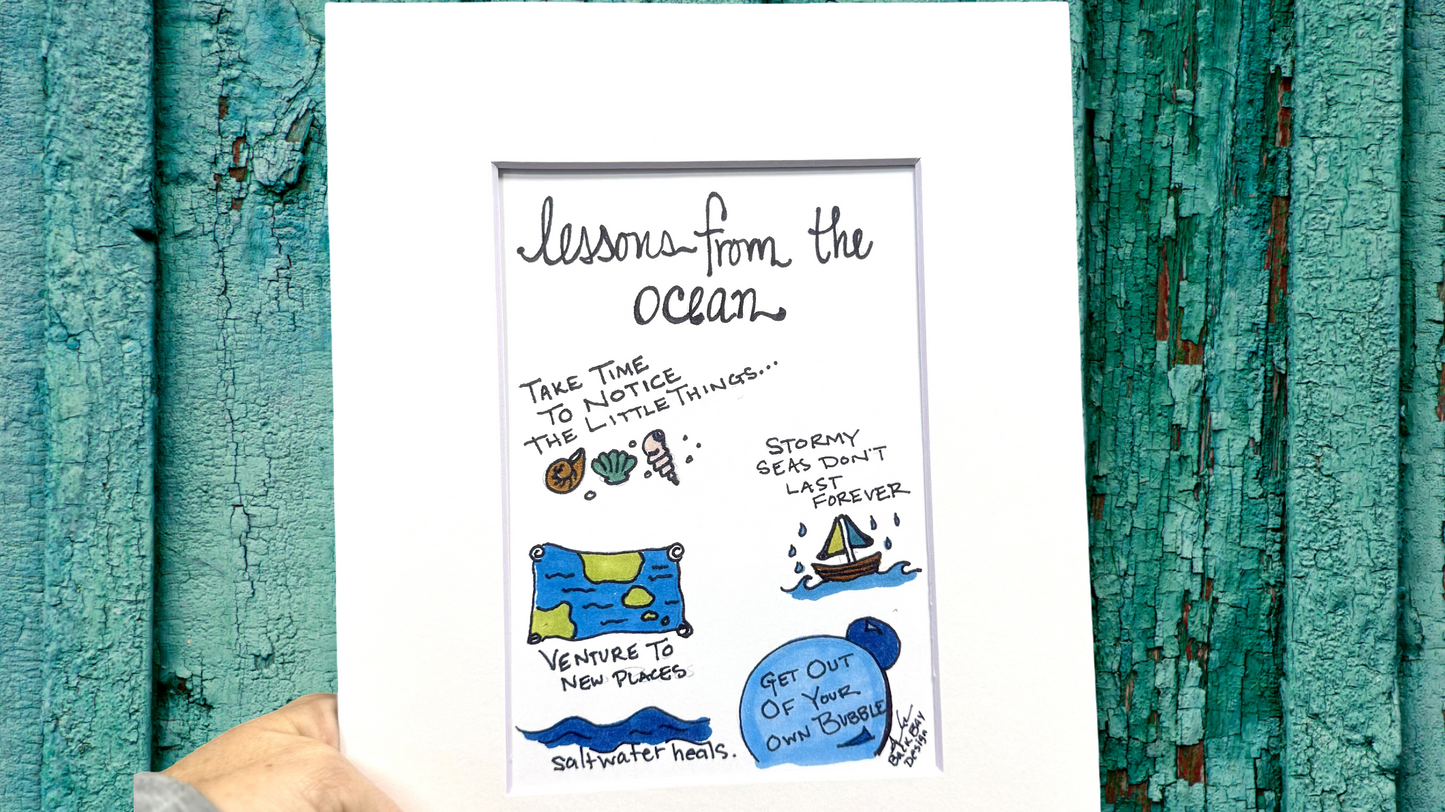 lessons from the
ocean
TAKE TIME
TO NOTICE
THE LITTLE THINGS...
STORMY
SEAS DON'T
LAST
FOREVER
VENTURE TO
NEW PLACES
GET OUT
OF YOUR
OWN BUBBLE
saltwater heals.
BACK BAY
DESIGN